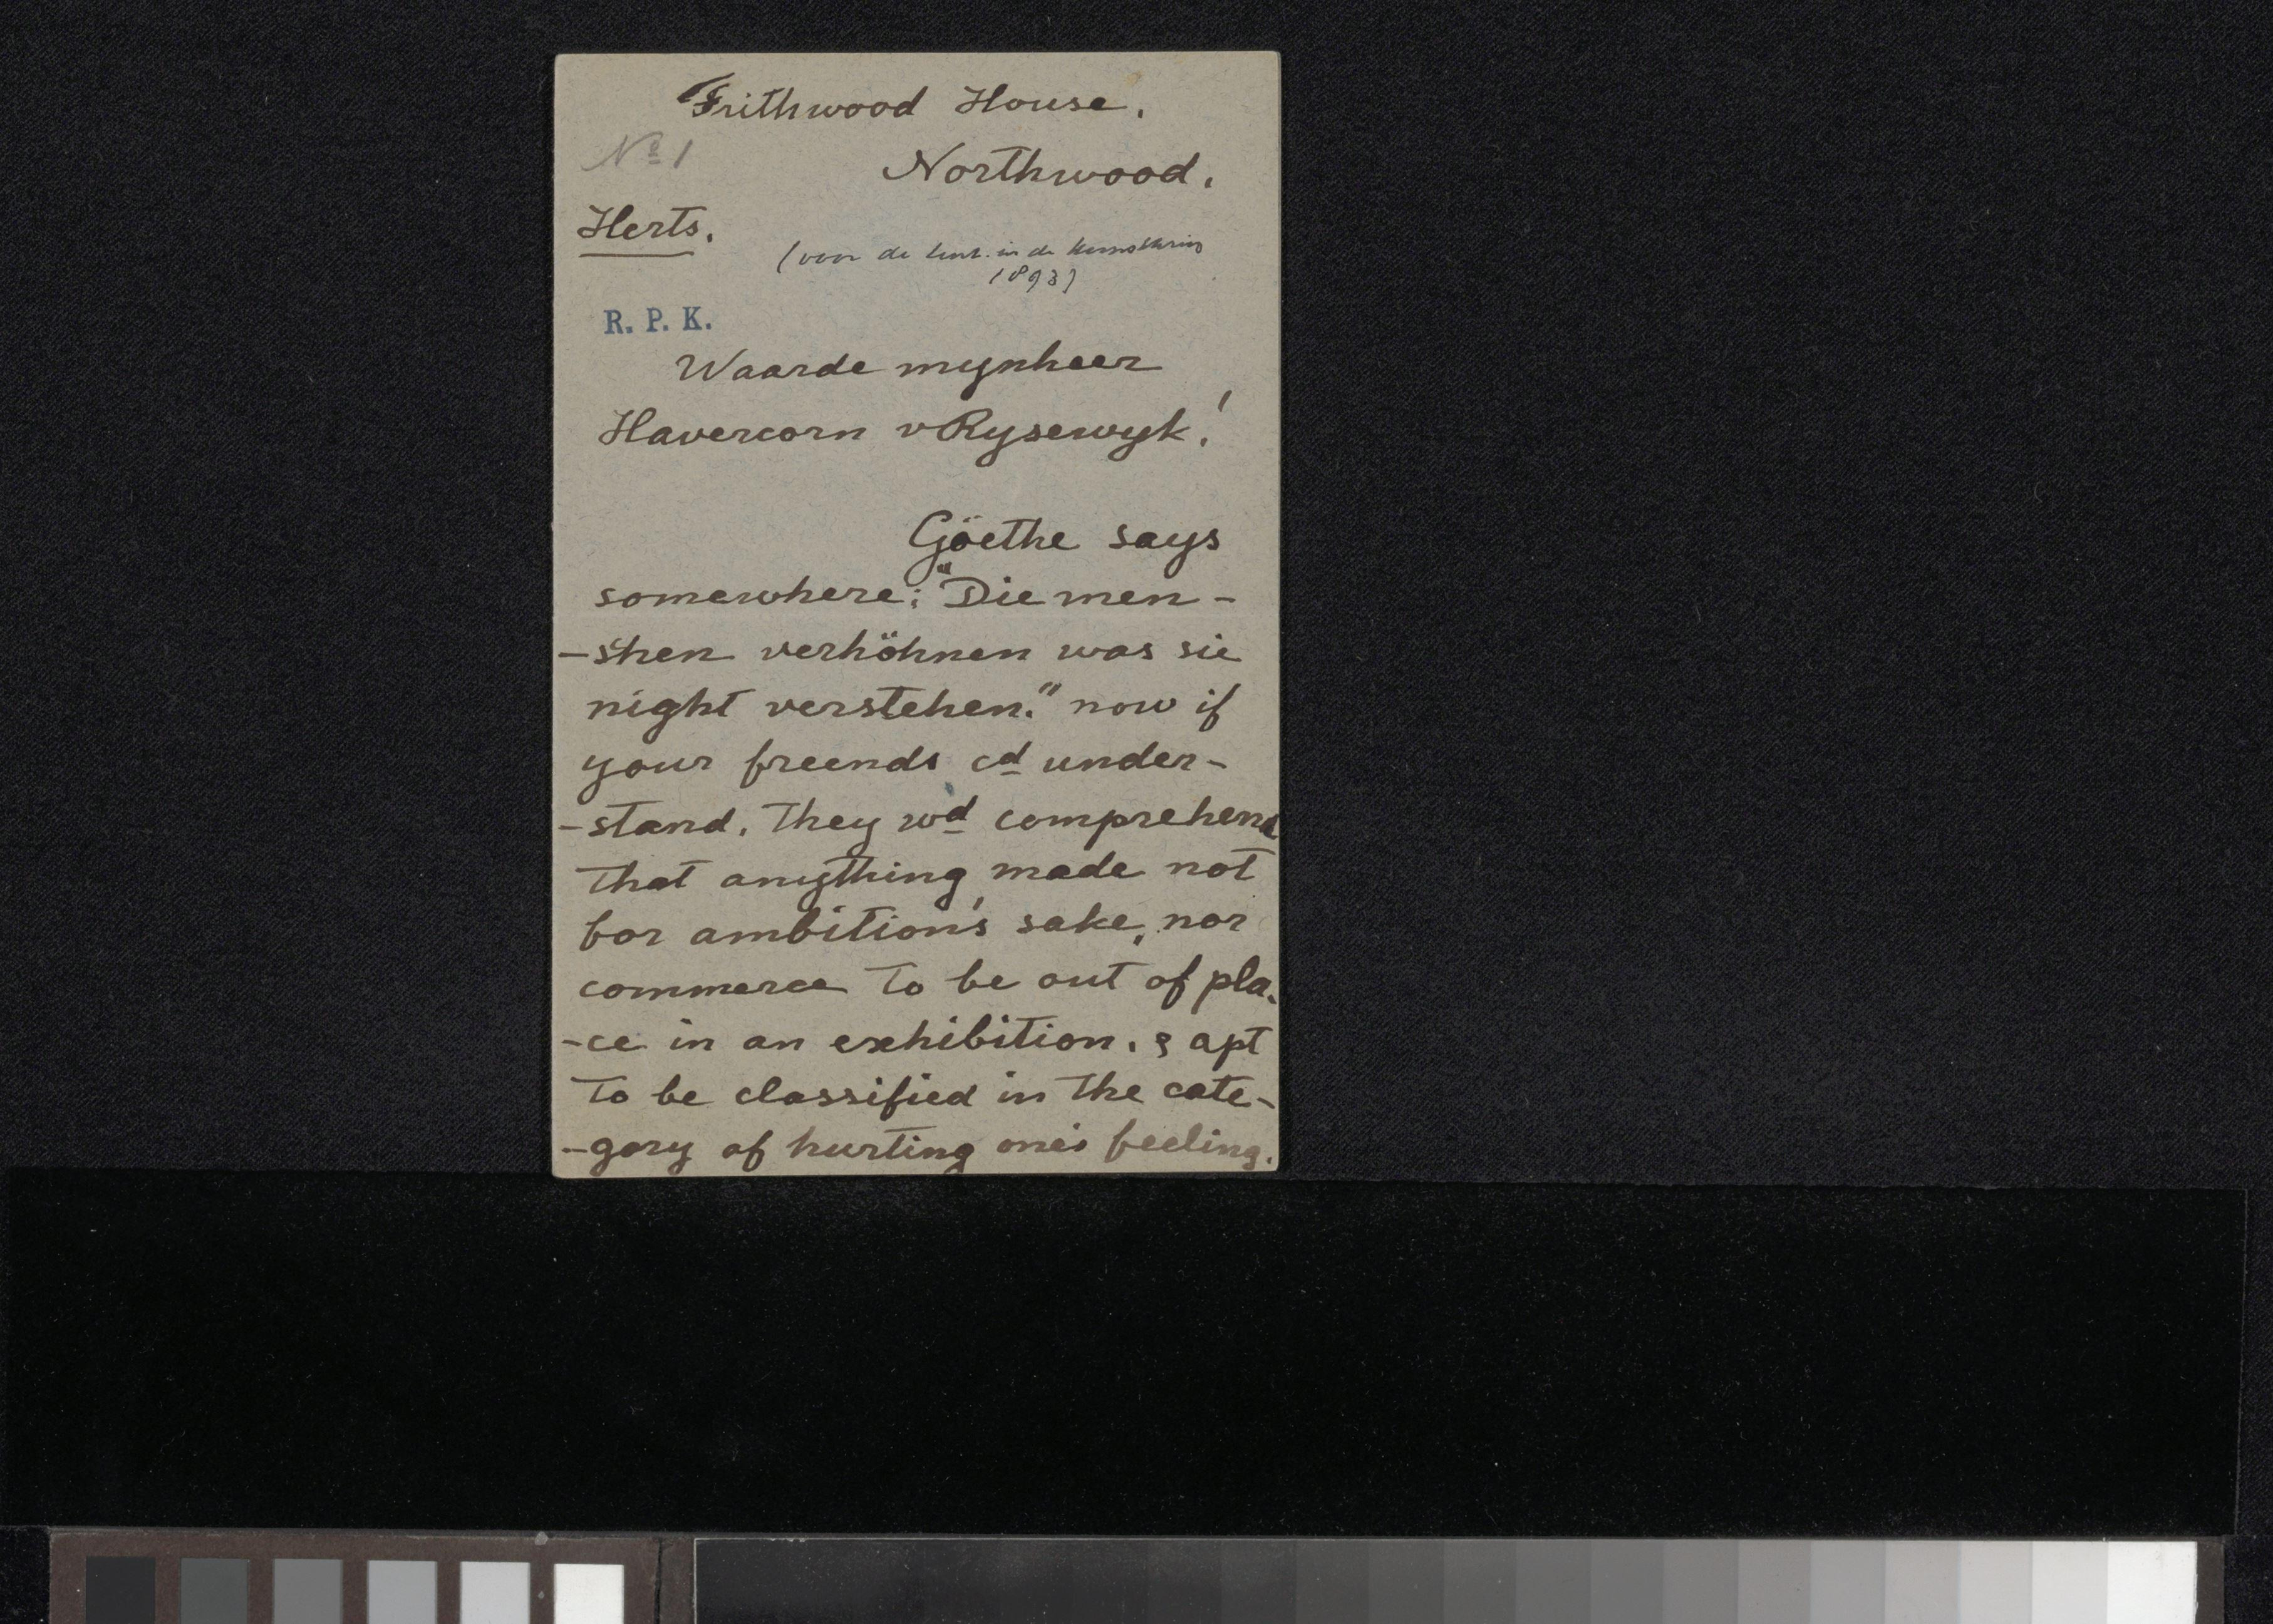 Frithwood House.
Nº 1
Northwood.
Herts.
(voor de tent. in de Kunstkring
1893)
R. P. K.
Waarde mynheer
Havercorn v Rysewyk!
Göethe says
somewhere: "Die men-
-shen verhöhnen was sie
night verstehen." now if
your freends cd under-
-stand, they wd comprehend
that anything made not
for ambition's sake, nor
commerce to be out of pla-
-ce in an exhibition. & apt
to be classified in the cate-
-gory of hurting one's feeling.